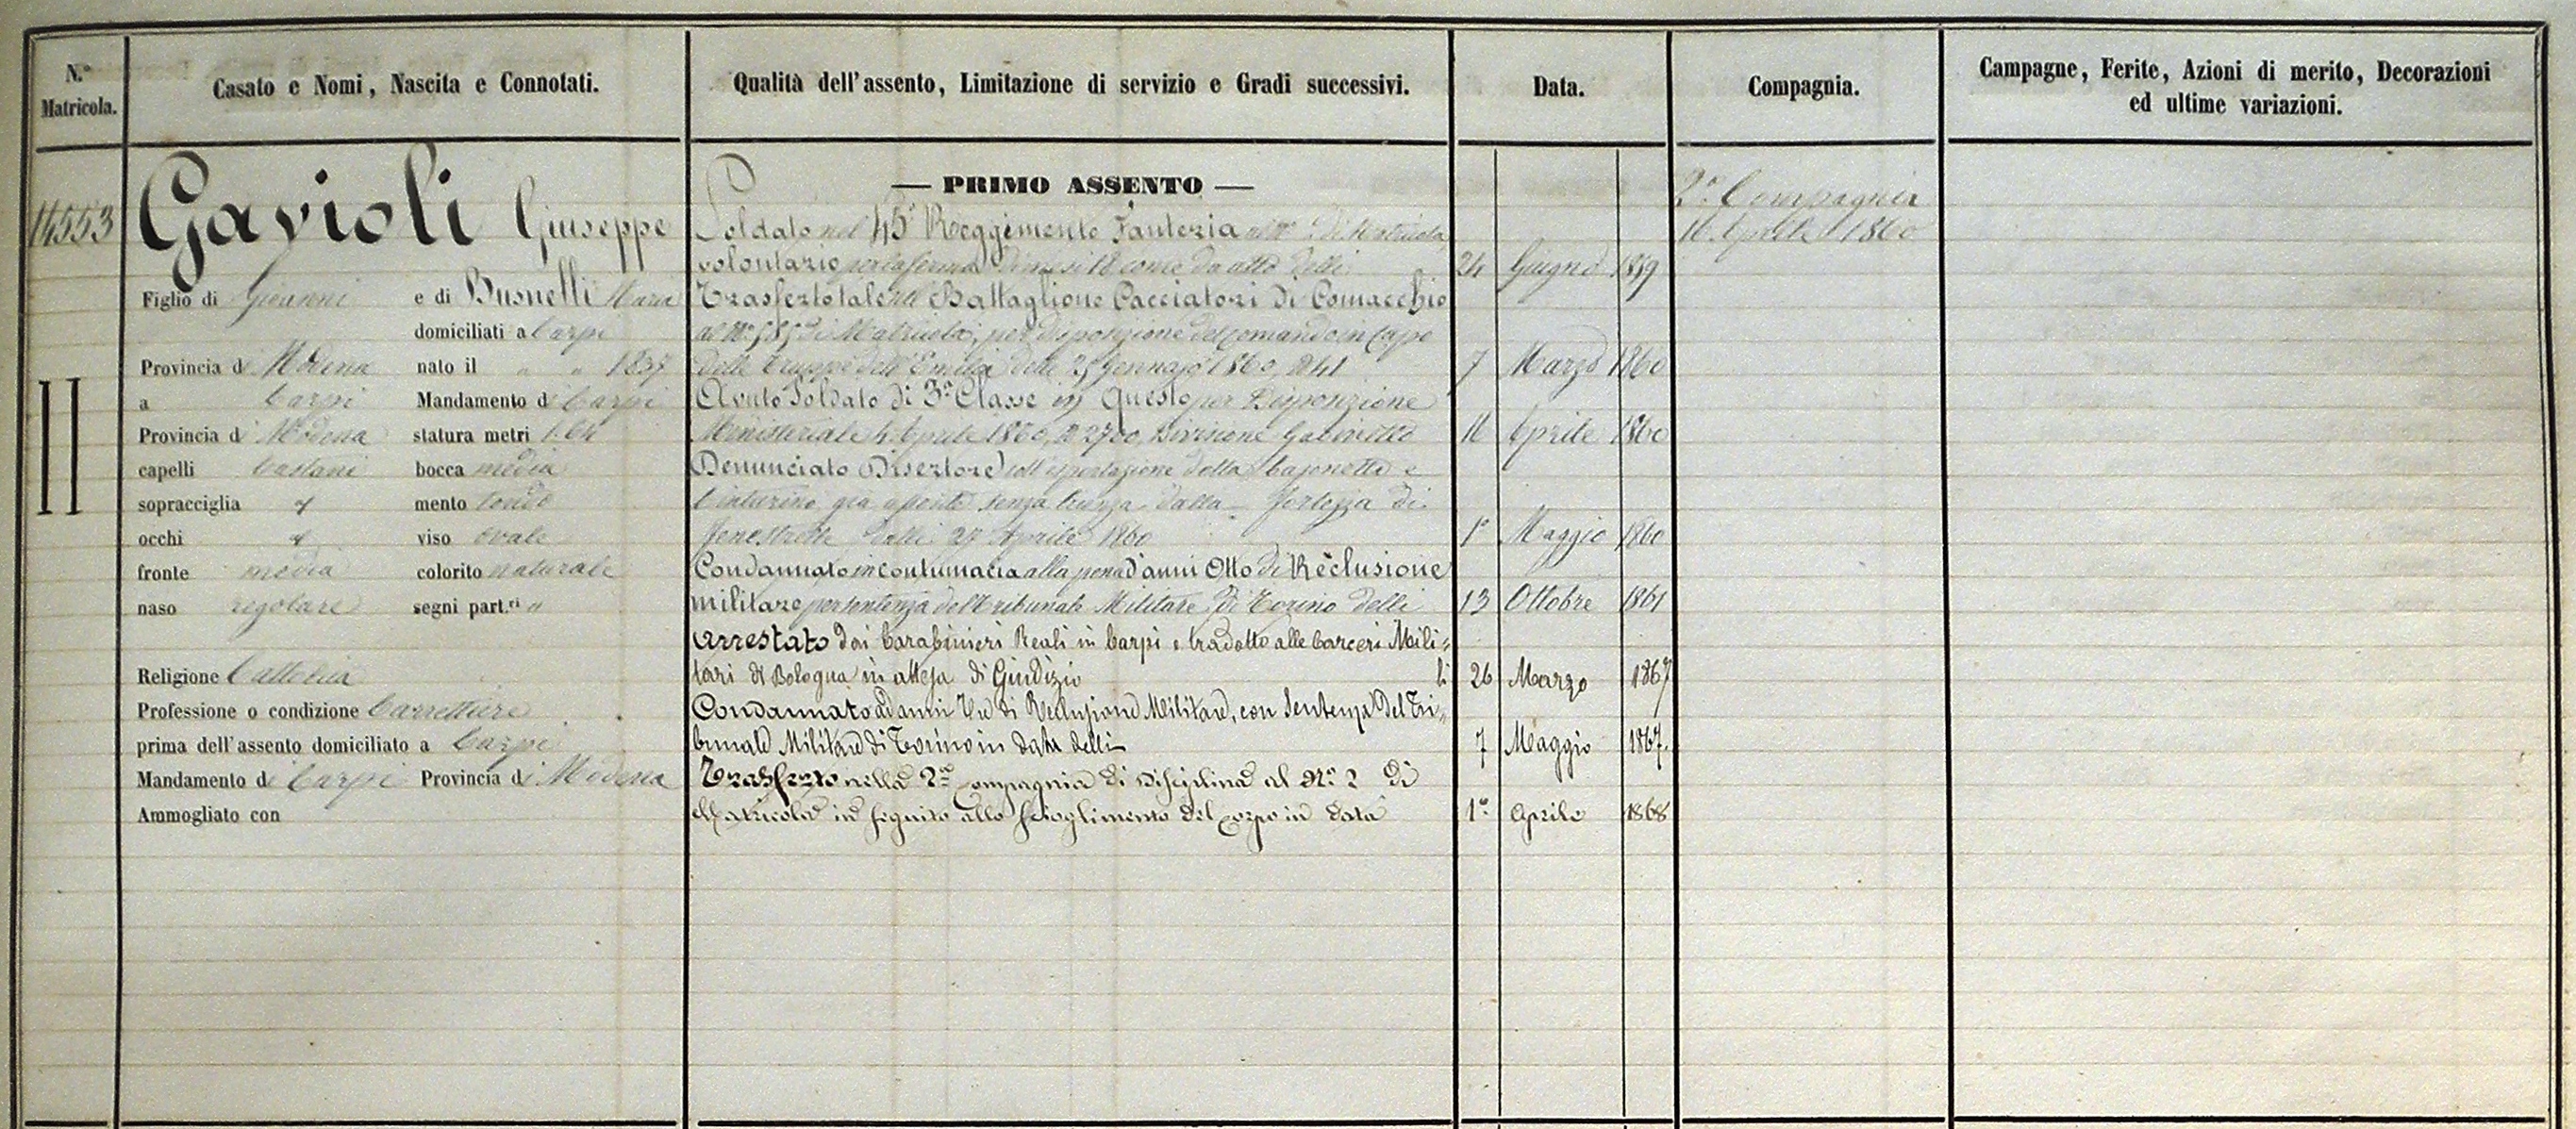 N.º Matricola.
Casato e Nomi, Nascita e Connotati.
Qualità dell'assento, Limitazione di servizio e Gradi successivi.
Data.
Compagnia.
Campagne, Ferite, Azioni di merito, Decorazioni
ed ultime variazioni.
14553
Gavioli Giuseppe
Figlio di Giovanni e di Busnelli Maria
domiciliati a Carpi
Provincia di Modena nato il " " 1837
a Carpi Mandamento di Carpi
Provincia di Modena statura metri 1.64
capelli castani bocca media
sopracciglia mento tondo
occhi viso ovale
fronte media colorito naturale
naso regolare segni part.ri "
Religione Cattolica
Professione o condizione Carrettiere
prima dell'assento domiciliato a Carpi
Mandamento di Carpi Provincia di Modena
Ammogliato con
II
— PRIMO ASSENTO —
Soldato nel 45º Reggimento Fanteria al Nº di Matricola
volontario per la ferma di mesi 18 come da atto delli 24 Giugno 1859
Trasferto tale nel Battaglione Cacciatori di Comacchio
al Nº di Matricola, per disposizione del comando in Capo
delle Truppe dell'Emilia delli 25 Gennajo 1860, Nº 41 7 Marzo 1860
Avuto Soldato di 3ª Classe in Questo per Disposizione
Ministeriale 4 Aprile 1860, Nº 2700, Divisione Gabinetto 16 Aprile 1860
Denunciato Disertore coll'esportazione della bajonetta e
cinturino già assente senza licenza dalla fortezza di
Fenestrelle dalli 27 Aprile 1860 1º Maggio 1860
Condannato in contumacia alla pena d'anni Otto di Reclusione
militare per sentenza del Tribunale Militare di Torino delli 13 Ottobre 1861
Arrestato dai Carabinieri Reali in Carpi e tradotto alle Carceri Mili-
tari di Bologna in attesa di Giudizio li 26 Marzo 1867
Condannato ad anni Tre di Reclusione Militare, con Sentenza del Tri-
bunale Militare di Torino in data delli 7 Maggio 1867.
Trasferto nella 2ª Compagnia di Disciplina al Nº 2 di
Matricola in seguito allo scioglimento del corpo in data 1º Aprile 1868
2ª Compagnia
16 Aprile 1860